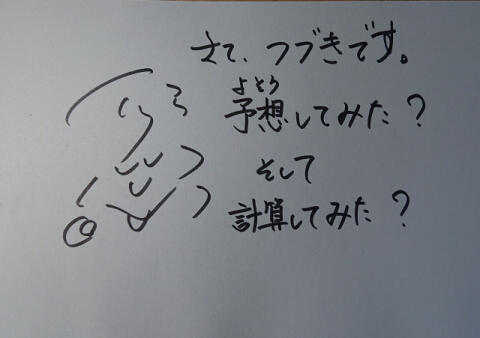 さて、つづきです。
よとう
予想してみた？
そして
計算してみた？